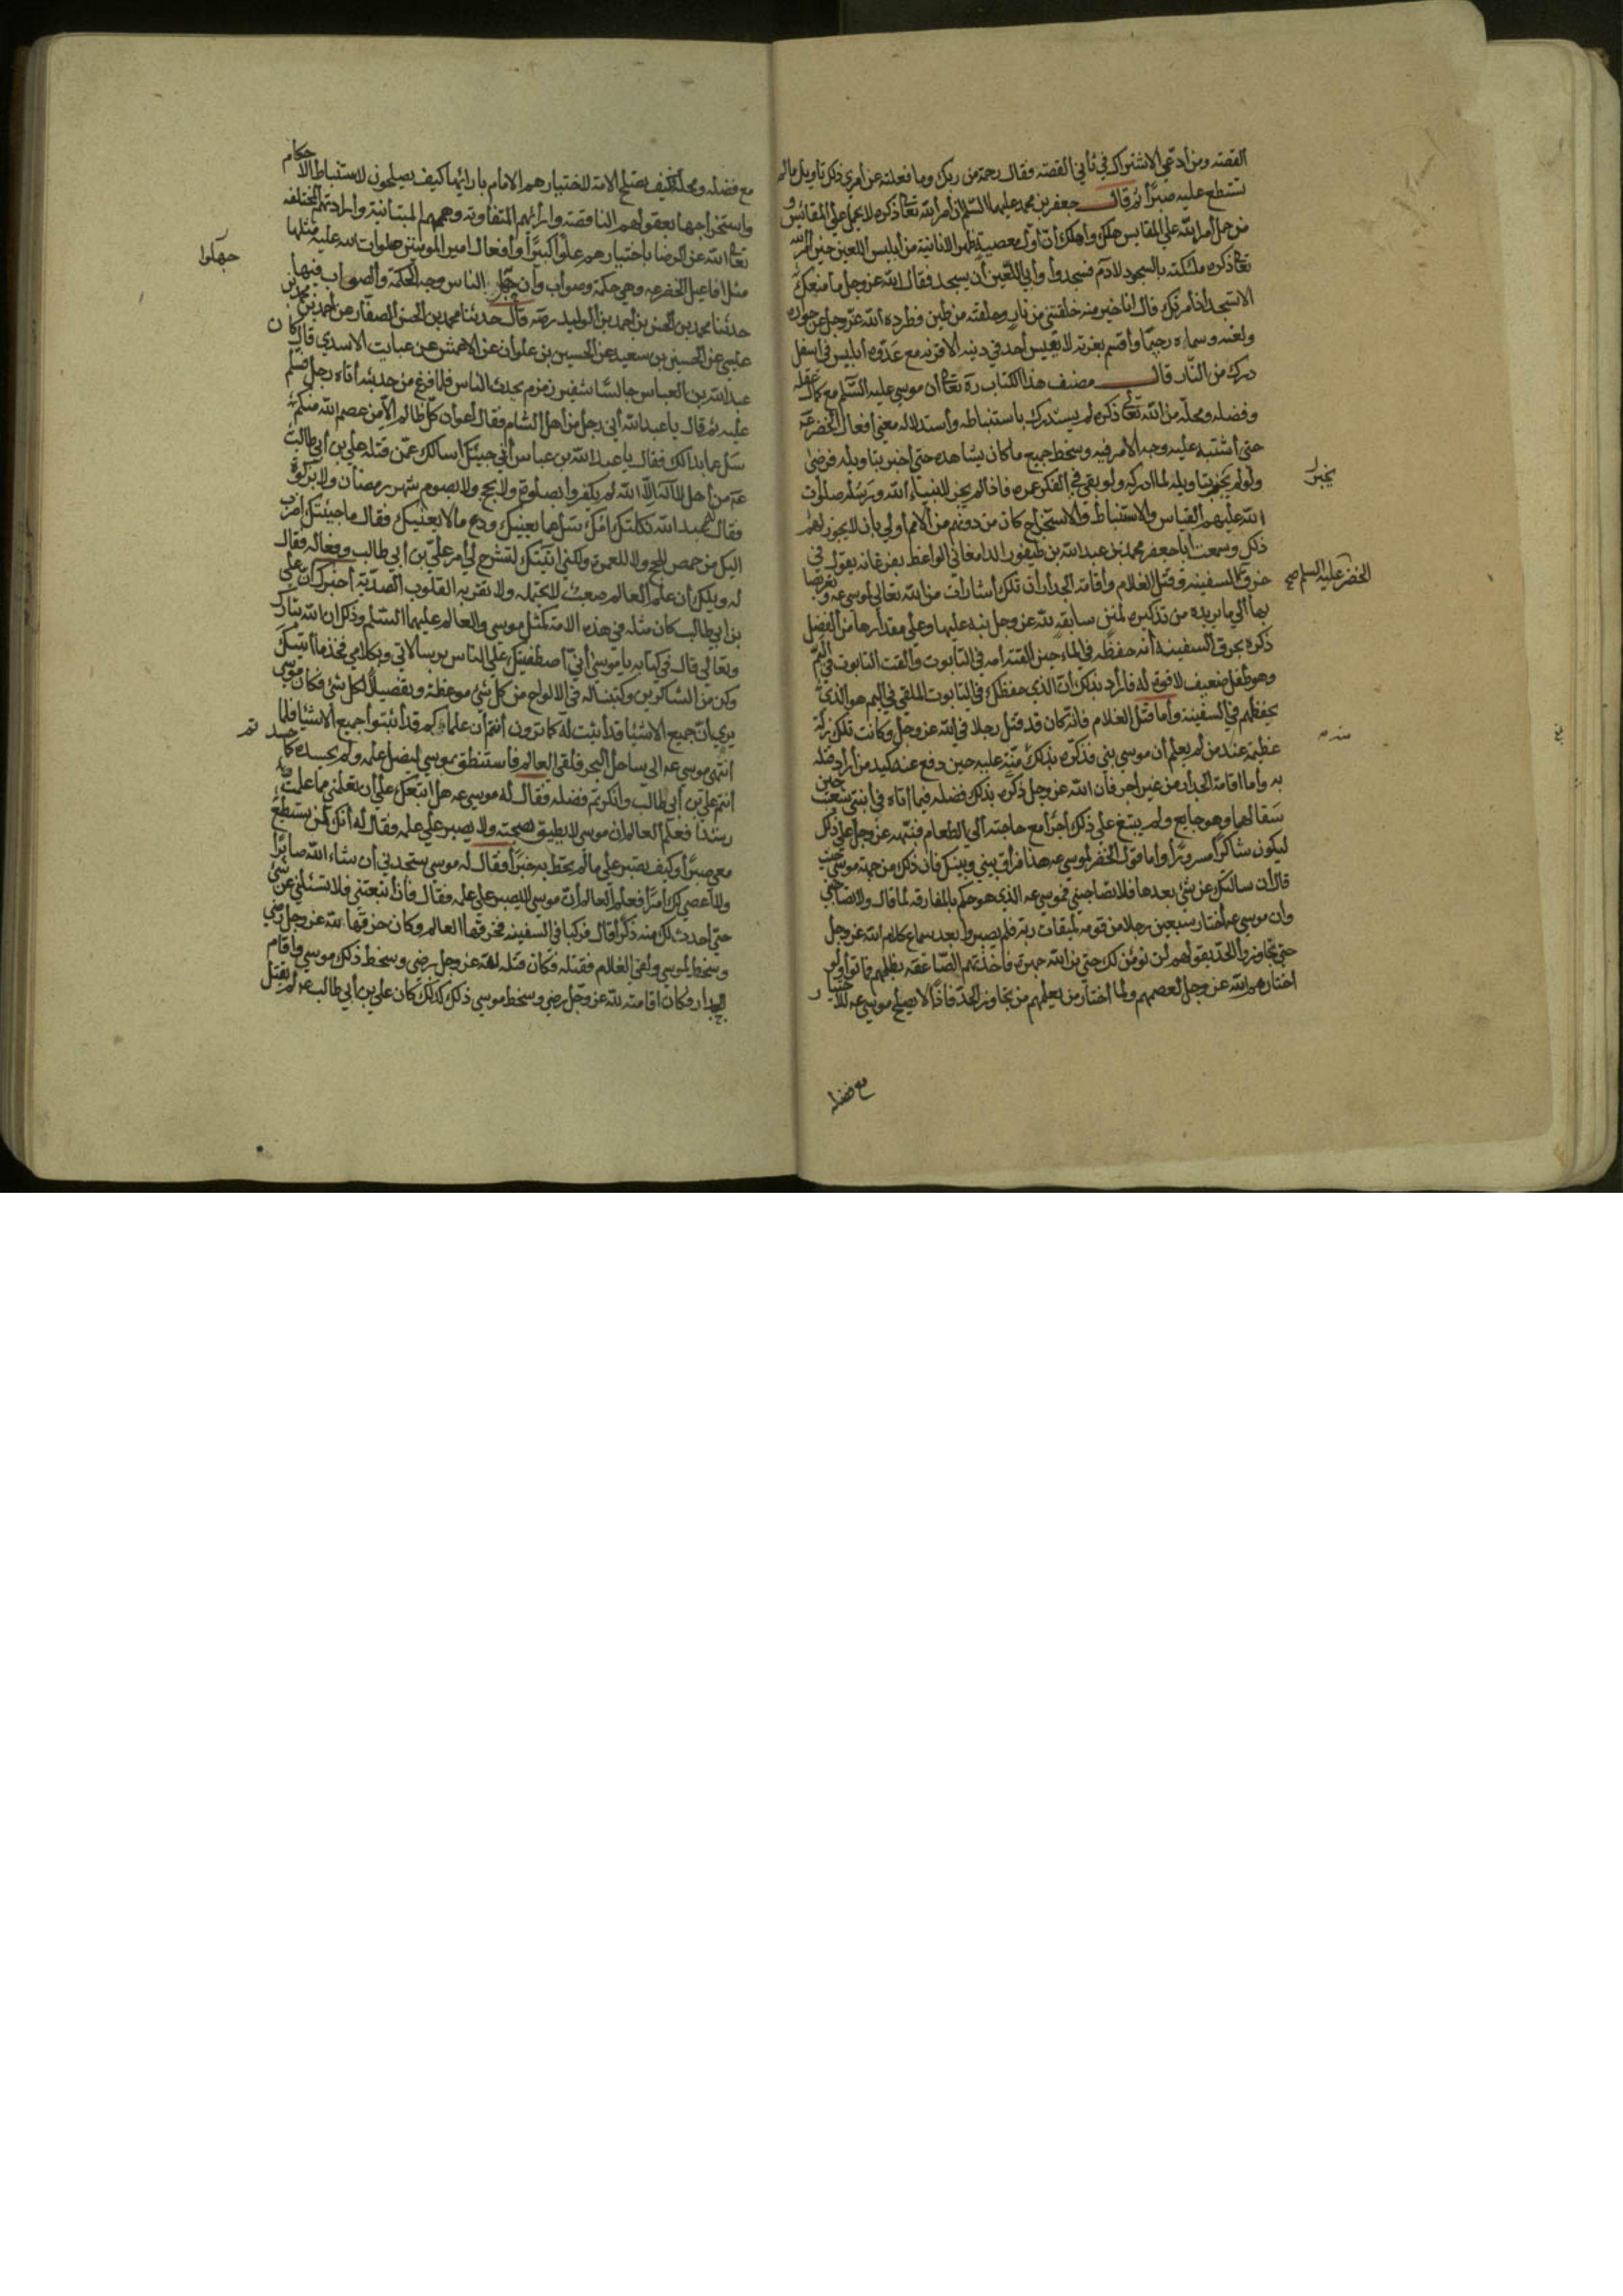 القصة ومن ادعى الاشتراك في ثاني القصة فقال رحمة من ربك وما فعلته عن امري ذكر تاويل مالم
تستطع عليه صبرا ثم قال جعفر بن محمد عليهما السلام ان امر الله تعا ذكره لا يحمل علي المقائيس و
من حمل امر الله علي المقايس هلك واهلك ان اول معصية ظهر الانانية من ابليس اللعين حين امر الله
تعا ذكره ملئكته بالسجود لادم فسجدوا وابي اللعين ان يسجد فقال الله عز وجل ما منعك
الا تسجد اذ امرتك قال انا خير منه خلقتني من نار وخلقته من طين فطرده الله عز وجل عن جواره
ولعنه وسماه رجيما واقسم بعزته لا يقيس احد في دينه الا قرنه مع عدوه ابليس في اسفل
درك من النار قال مصنف هذا الكتاب ره تعا ان موسي عليه السلام مع كمال عقله
وفضله ومحله من الله تعالي ذكره لم يستدرك باستنباطه واستدلاله معني افعال الخضر عه
حتي اشتبه عليه وجه الامر فيه وسخط جميع ما كان يشاهده حتي اخبر بتاويله فرضي
ولو لم يخبر بتاويله لما ادركه ولو بقي في الفكر عمره فاذا لم يجز لانبياء الله ورسله صلوات
الله عليهم القياس والاستنباط والاستخراج كان من دونهم من الامم اولي بان لا يجوز لهم
ذلك وسمعت ابا جعفر محمد بن عبد الله بن طيفور الدامغاني الواعظ بفرغانه يقول في
خرق السفينه وقتل الغلام واقامة الجدار ان تلك اشارات من الله تعالي لموسي عه وتعريضا
بها الي ما يريده من تذكيره لمنن سابقه لله عز وجل نبه عليها وعلي مقدارها من الفضل
ذكره بخرق السفينة انه حفظه في الماء حين القته امه في التابوت والقت التابوت في اليم
وهو طفل ضعيف لا قوة له فاراد بذلك ان الذي حفظك في التابوت الملقي في اليم هو الذي
يحفظهم في السفينة واما قتل الغلام فانه كان قد قتل رجلا في الله عز وجل وكانت تلك زلة
عظيمة عند من لم يعلم ان موسي نبي فذكره بذلك منة عليه حين دفع عنه كيد من اراد قتله
به واما اقامة الجدار من غير اجر فان الله عز وجل ذكره بذلك فضله فيما اتاه في ابنتي شعيب حين
سقا لهما وهو جايع ولم يبتغ علي ذلك اجرا مع حاجته الي الطعام فنبهه عز وجل علي ذلك
ليكون شاكرا مسرورا واما قول الخضر لموسي عه هذا فراق بيني وبينك فان ذلك من جهة موسي حيث
قال ان سالتك عن شي بعدها فلا تصاحبني فموسي عه الذي هو حكم بالمفارقه لما قال ولا تصاحبني
وان موسي عه اختار سبعين رجلا من قومه لميقات ربه فلم يصبروا بعد سماع كلام الله عز وجل
حتي تجاوزوا الحد بقولهم لن نؤمن لك حتي نري الله جهرة فاخذتهم الصاعقه بظلمهم فماتوا ولو
اختارهم الله عز وجل لعصمهم ولما اختار من يعلمهم من تجاوز الحد فاذا لا يصلح موسي عه للاختيار
يخبر
الخضر عليه السلم صح
مع فضله
مع فضله ومحله فكيف تصلح الامة لاختيارهم الامام بارائها كيف يصلحون لاستنباط الاحكام
واستخراجها بعقولهم الناقصة وارائهم المتفاوته وهممهم المتباينة وارادتهم المختلفه
تعا الله عن الرضا باختيارهم علوا كبيرا وافعال امير المومنين صلوات الله عليه مثلها
مثل افاعيل الخضر عه وهي حكمة وصواب وان جهل الناس وجه الحكمة والصواب فيها
حدثنا محمد بن الحسن بن احمد بن الوليد رضه قال حدثنا محمد بن الحسن الصفار عن احمد بن محمد بن
عيسي عن الحسين بن سعيد عن الحسين بن علوان عن الاعمش عن عبايت الاسدي قال كان
عبد الله بن العباس جالسا شفير زمزم يحدث الناس فلما فرغ من حديثه اتاه رجل فسلم
عليه ثم قال يا عبد الله اني رجل من اهل الشام فقال اعوان كل ظالم الا من عصم الله منكم
سل عما بدا لك فقال يا عبد الله بن عباس اني جيتك اسالك عمن قتله علي بن ابي طالب
عه من اهل لا اله الا الله لم يكفروا بصلوة ولا بحج ولا بصوم شهر رمضان ولا بزكوة
فقال له عبد الله ثكلتك امك سل عما يعنيك ودع مالا يعنيك فقال ما جيئتك اضرب
اليك من حمص للحج ولا للعمرة ولكني اتيتك لتشرح لي امر علي بن ابي طالب وفعاله فقال
له ويلك ان علم العالم صعب لا يحتمله ولا تقربه القلوب الصدية اخبرك ان علي
بن ابي طالب كان مثله في هذه الامة كمثل موسي والعالم عليهما السلم وذلك ان الله تبارك
وتعالي قال في كتابه يا موسي اني اصطفيتك علي الناس برسالاتي وبكلامي فخذ ما اتيتك
وكن من الشاكرين وكتبنا له في الالواح من كل شي موعظة وتفصيلا لكل شي فكان موسي
يري ان جميع الاشيا قد اثبت له كما ترون انتم ان علماكم قد اثبتوا جميع الاشيا فلما
انتهي موسي عه الي ساحل البحر فلقي العالم فاستنطق بموسي ليصل علمه ولم يحسده كما
انتم علي بن ابي طالب وانكرتم فضله فقال له موسي عه هل اتبعك علي ان تعلمني مما علمت
رشدا فعلم العالم ان موسي لا يطيق بصحبته ولا يصبر علي علمه فقال له انك لن تستطيع
معي صبرا وكيف تصبر علي مالم تحط به خبرا فقال له موسي ستجدني ان شاء الله صابرا
ولا اعصي لك امرا فعلم العالم ان موسي لا يصبر علي علمه فقال فان اتبعتني فلا تسئلني عن شي
حتي احدث لك منه ذكرا قال فركبا في السفينه فخرقها العالم وكان خرقها لله عز وجل رضي
وسخط لموسي ولقي الغلام فقتله فكان قتله لله عز وجل رضي وسخط ذلك موسي واقام
الجدار فكان اقامته لله عز وجل رضي وسخط موسي ذلك كذلك كان علي بن ابي طالب عه لم يقتل
جهلوا
حسدتم